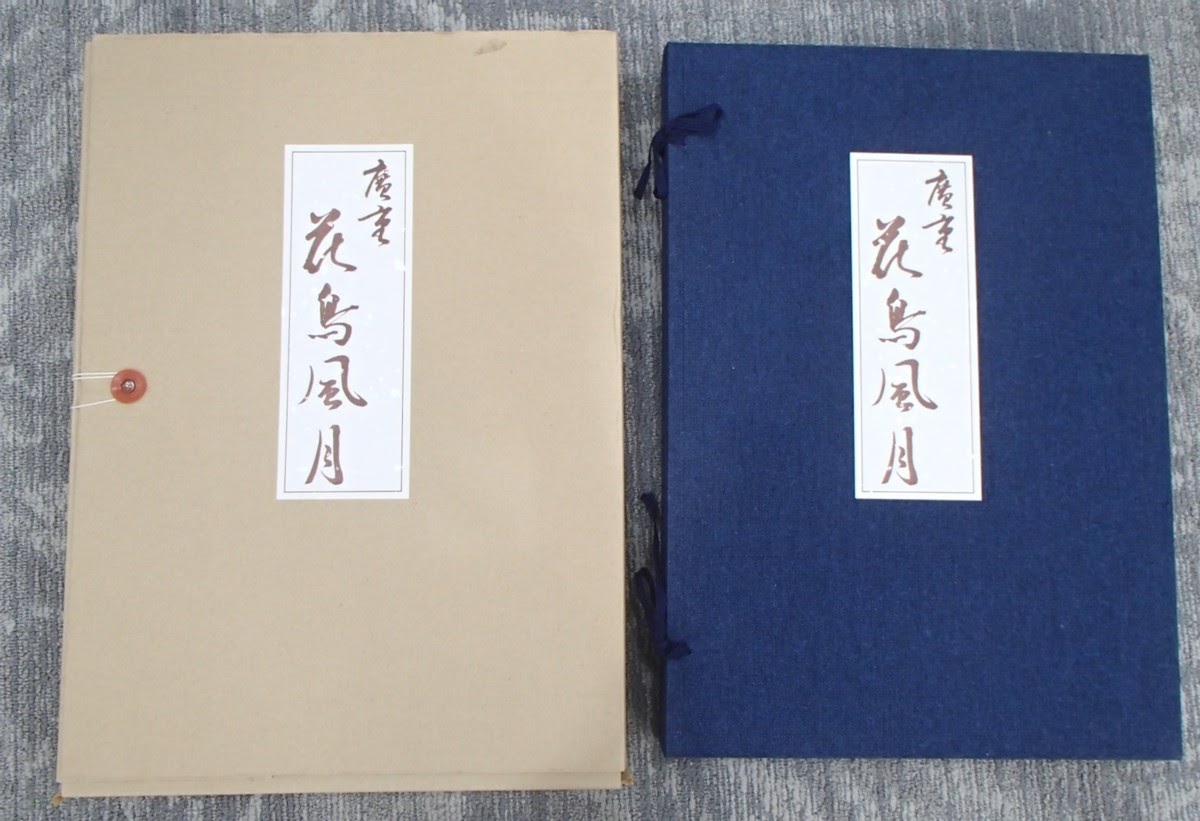 廣重
花鳥風月
廣重
花鳥風月